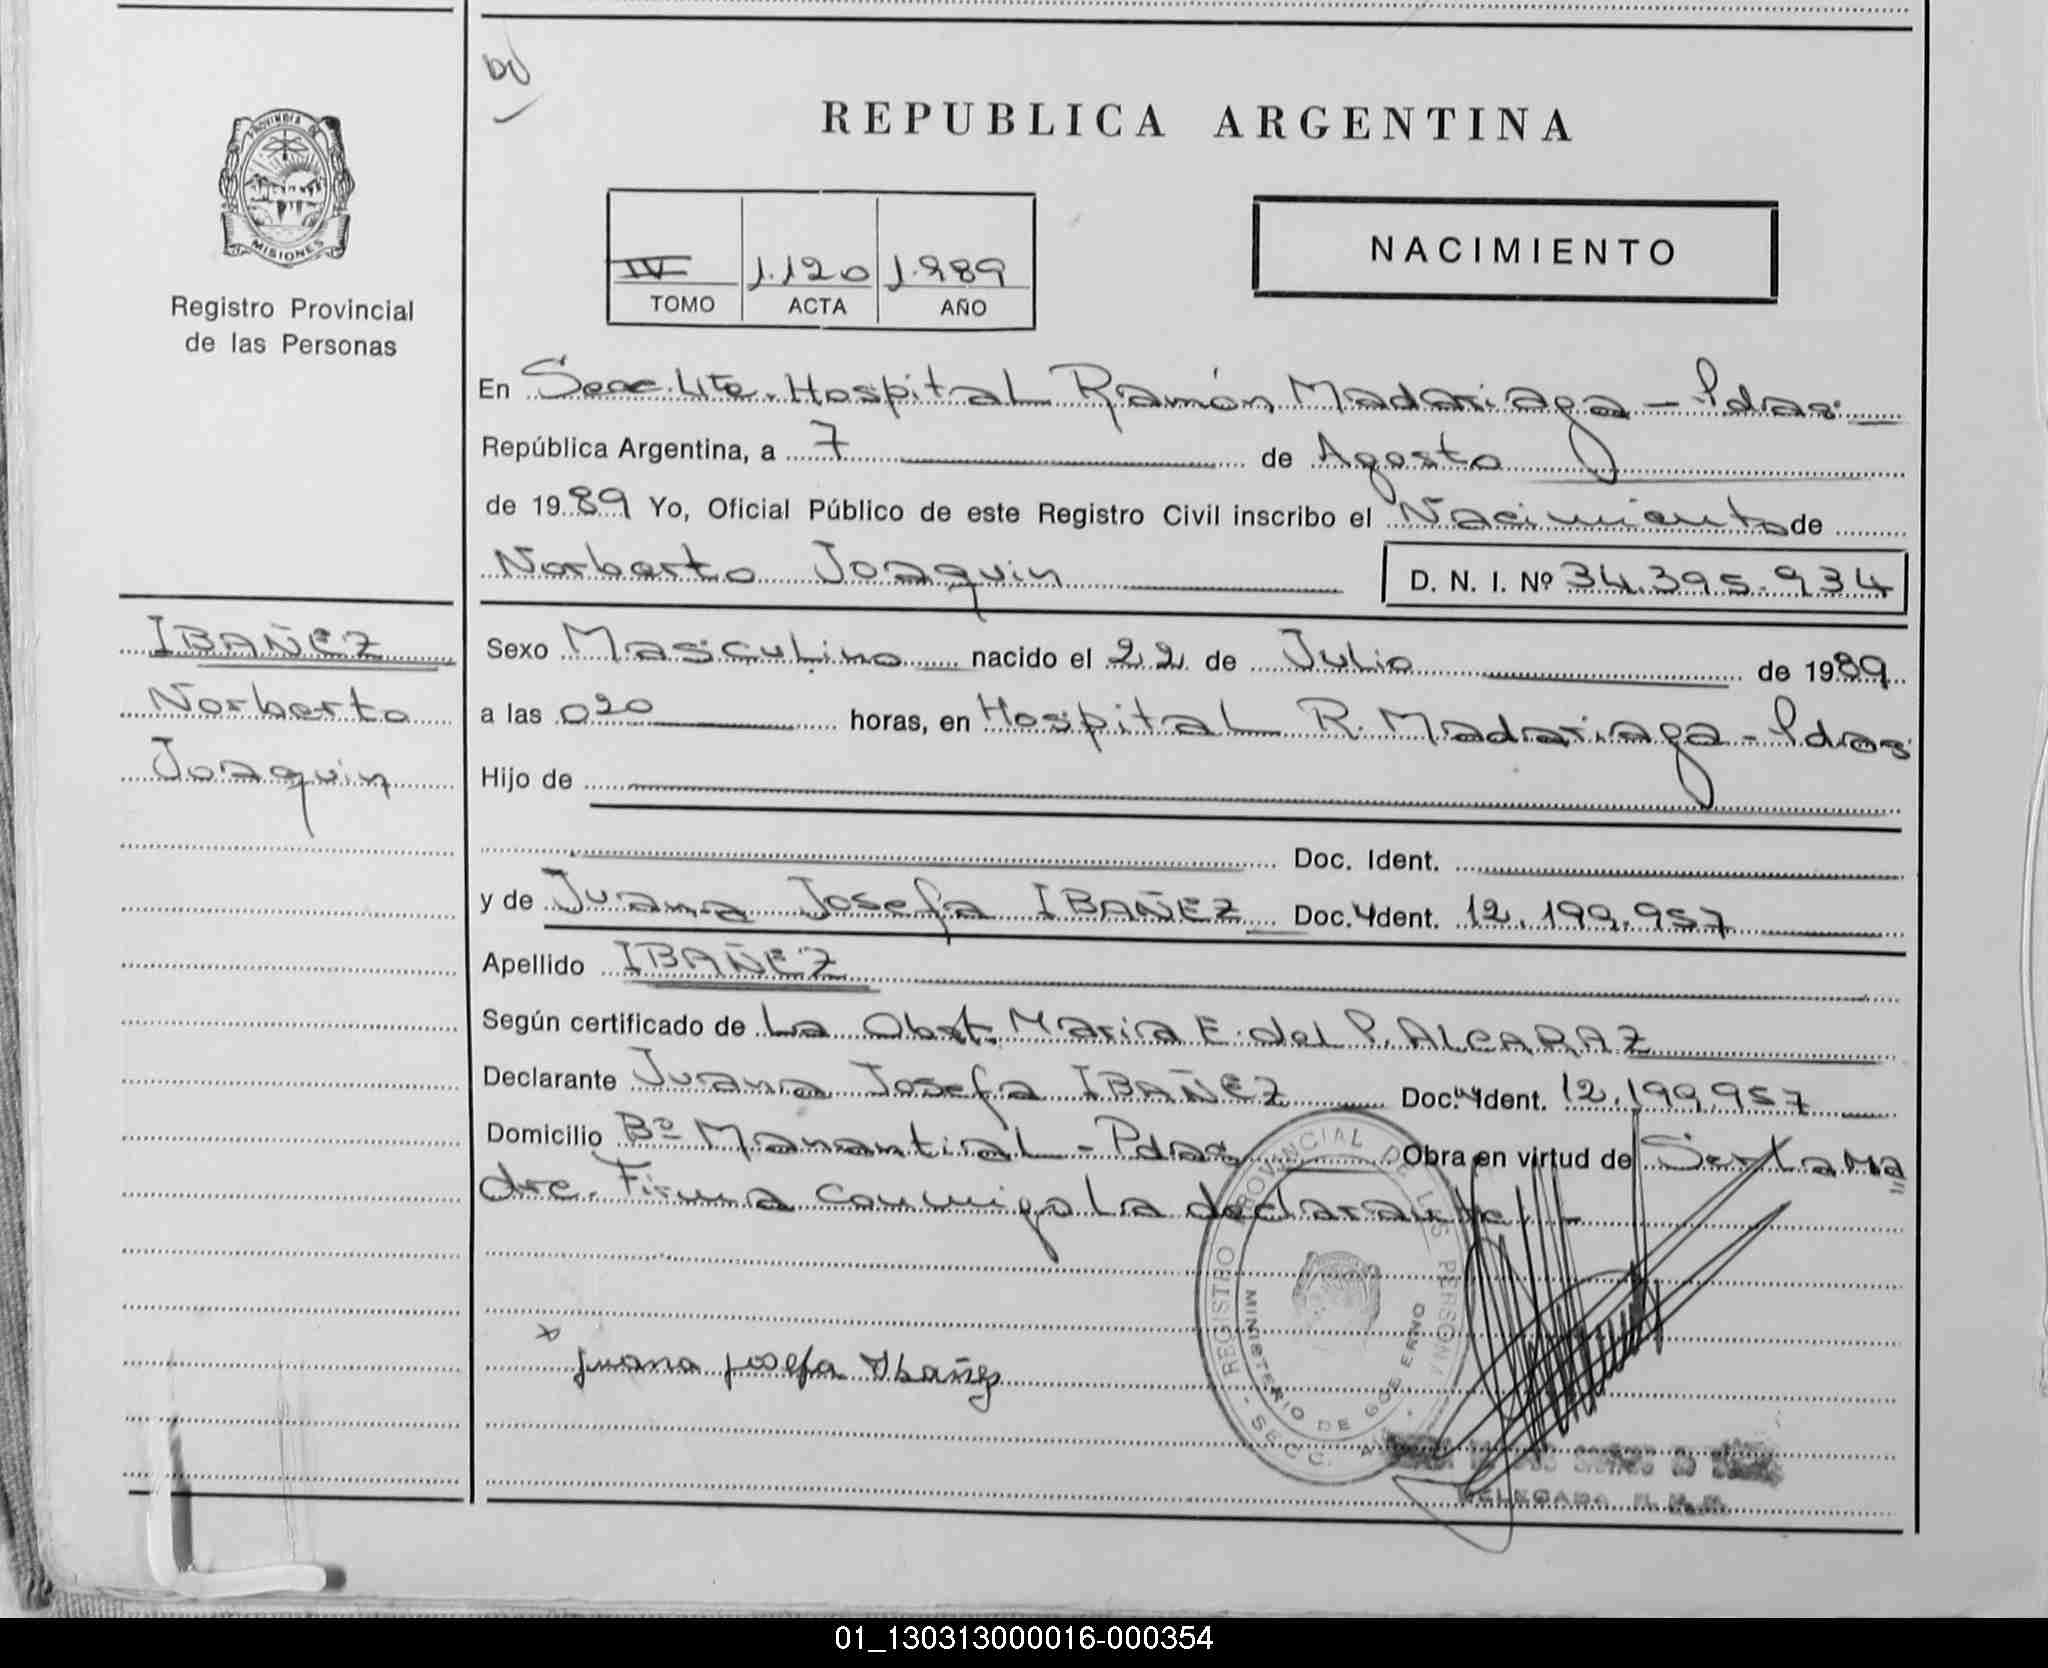 REPUBLICA ARGENTINA
PROVINCIA DE
MISIONES
Registro Provincial
de las Personas
IV 1.120 1.989
TOMO ACTA AÑO
NACIMIENTO
En Secc. 4ta. Hospital Ramón Madariaga - Pdas.
República Argentina, a 7 de Agosto
de 1989 Yo, Oficial Público de este Registro Civil inscribo el Nacimiento de
Norberto Joaquin D. N. I. Nº 34.395.934
IBAÑEZ
Norberto
Joaquin
Sexo Masculino nacido el 22 de Julio de 1989
a las 020 horas, en Hospital R. Madariaga - Pdas
Hijo de
Doc. Ident.
y de Juana Josefa IBAÑEZ Doc. Ident. 12.199.957
Apellido IBAÑEZ
Según certificado de La Obst. Maria E. del P. ALCARAZ
Declarante Juana Josefa IBAÑEZ Doc. Ident. 12.199.957
Domicilio Bº Manantial - Pdas Obra en virtud de Ser la Ma
dre. Firma conmigo la declarante
REGISTRO PROVINCIAL DE LAS PERSONAS
MINISTERIO DE GOBIERNO
SECC.
x Juana Josefa Ibañez
DELEGADA
01_130313000016-000354